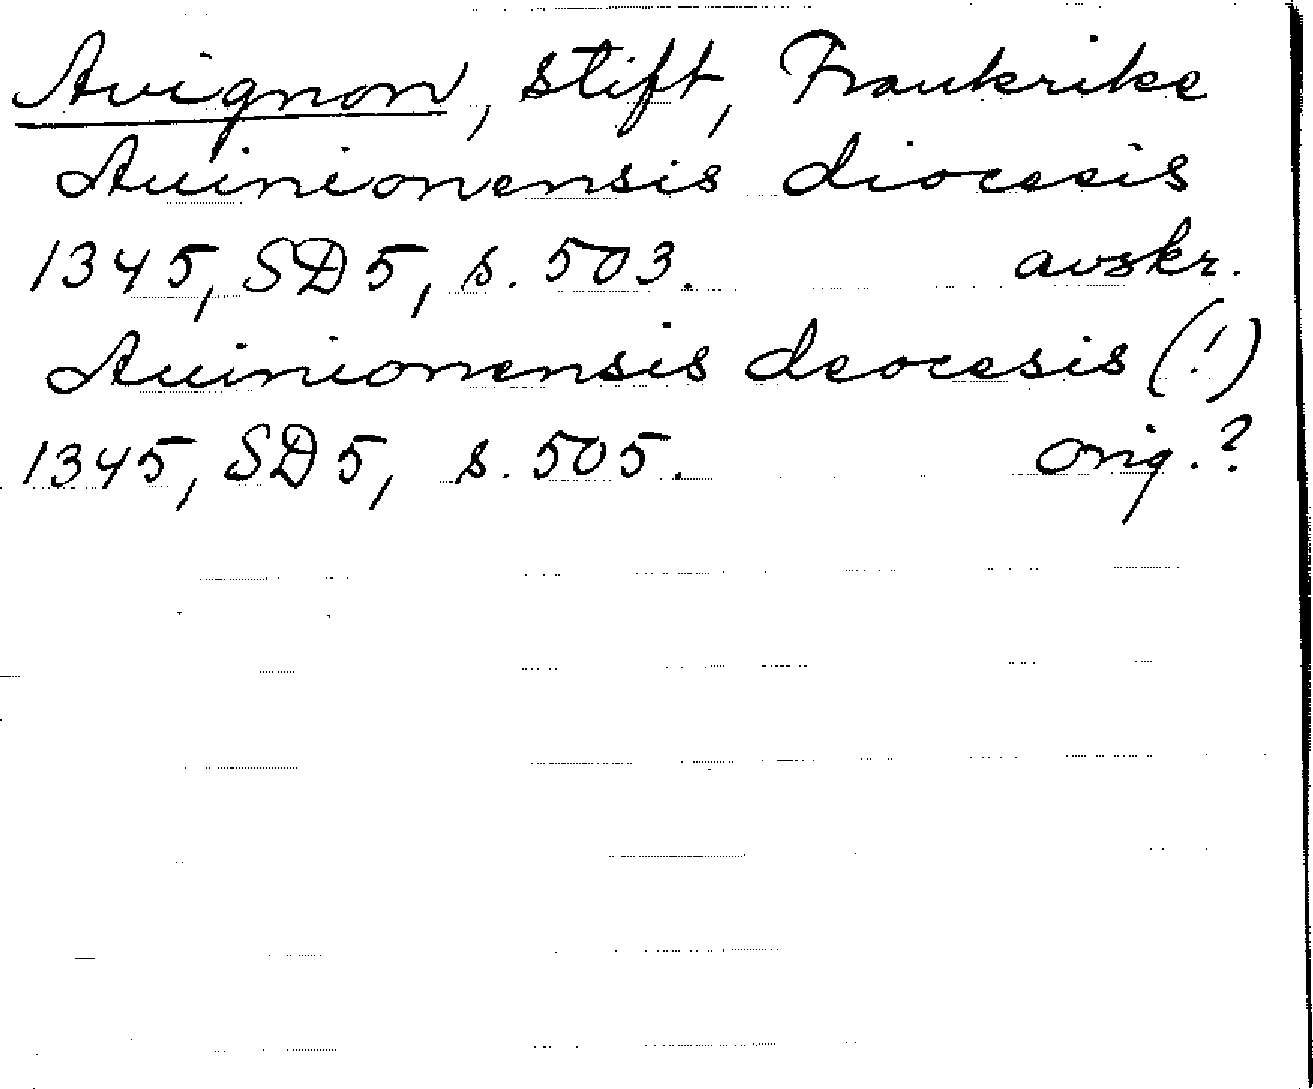 Avignon, stift, Frankrike
Auinionensis diocesis
1345, SD 5, s. 503. avskr.
Auinionensis deocesis (!)
1345, SD 5, s. 505. orig.?